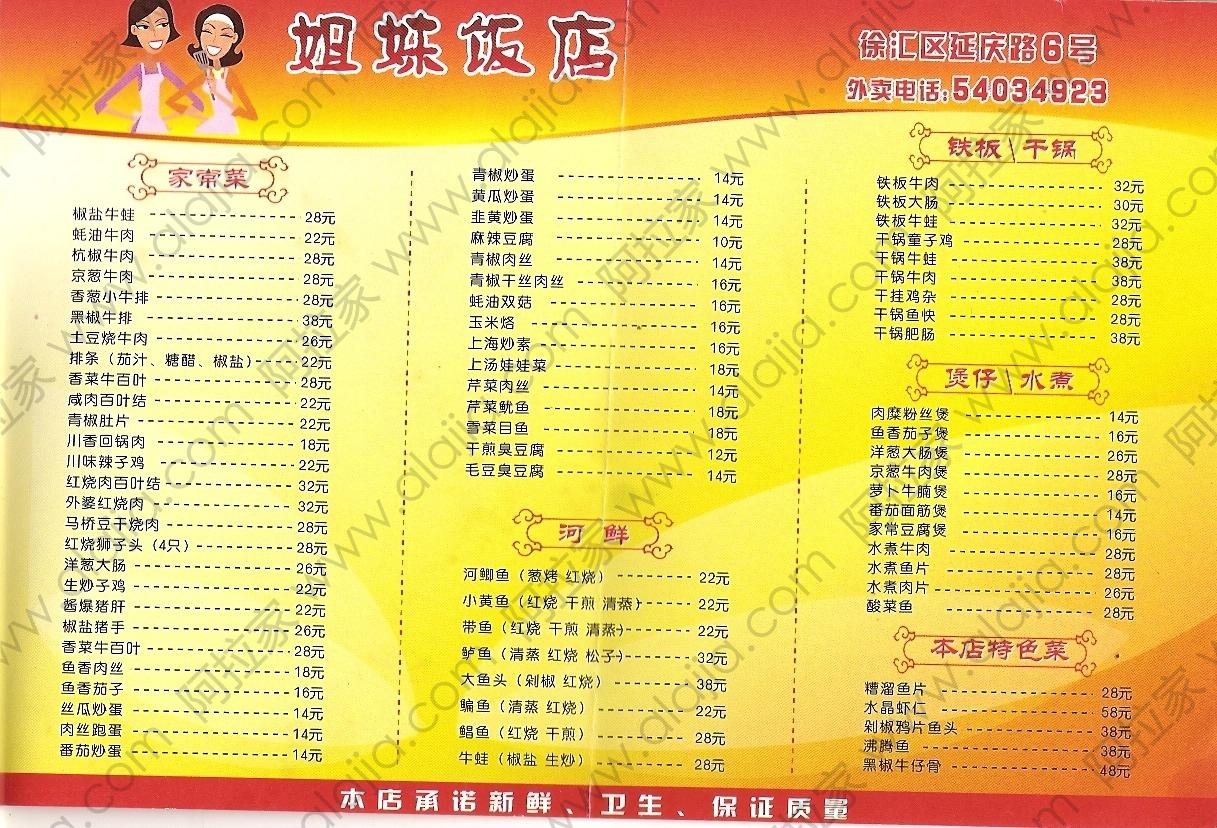 姐妹饭店
徐汇区延庆路6号
外卖电话:54034923
家常菜
椒盐牛蛙 28元
蚝油牛肉 22元
杭椒牛肉 28元
京葱牛肉 28元
香葱小牛排 28元
黑椒牛排 38元
土豆烧牛肉 26元
排条（茄汁、糖醋、椒盐） 22元
香菜牛百叶 28元
咸肉百叶结 22元
青椒肚片 22元
川香回锅肉 18元
川味辣子鸡 22元
红烧肉百叶结 32元
外婆红烧肉 32元
马桥豆干烧肉 28元
红烧狮子头（4只） 28元
洋葱大肠 26元
生炒子鸡 22元
酱爆猪肝 22元
椒盐猪手 26元
香菜牛百叶 28元
鱼香肉丝 18元
鱼香茄子 16元
丝瓜炒蛋 14元
肉丝跑蛋 14元
番茄炒蛋 14元
青椒炒蛋 14元
黄瓜炒蛋 14元
韭黄炒蛋 14元
麻辣豆腐 10元
青椒肉丝 14元
青椒干丝肉丝 16元
蚝油双菇 16元
玉米烙 16元
上海炒素 16元
上汤娃娃菜 18元
芹菜肉丝 14元
芹菜鱿鱼 18元
雪菜目鱼 18元
干煎臭豆腐 12元
毛豆臭豆腐 14元
河鲜
河鲫鱼（葱烤 红烧） 22元
小黄鱼（红烧 干煎 清蒸） 22元
带鱼（红烧 干煎 清蒸） 22元
鲈鱼（清蒸 红烧 松子） 32元
大鱼头（剁椒 红烧） 38元
鳊鱼（清蒸 红烧） 22元
鲳鱼（红烧 干煎） 28元
牛蛙（椒盐 生炒） 28元
铁板\干锅
铁板牛肉 32元
铁板大肠 30元
铁板牛蛙 32元
干锅童子鸡 28元
干锅牛蛙 38元
干锅牛肉 38元
干挂鸡杂 28元
干锅鱼快 28元
干锅肥肠 38元
煲仔\水煮
肉糜粉丝煲 14元
鱼香茄子煲 16元
洋葱大肠煲 26元
京葱牛肉煲 28元
萝卜牛腩煲 16元
番茄面筋煲 14元
家常豆腐煲 16元
水煮牛肉 28元
水煮鱼片 28元
水煮肉片 26元
酸菜鱼 28元
本店特色菜
糟溜鱼片 28元
水晶虾仁 58元
剁椒鸦片鱼头 38元
沸腾鱼 38元
黑椒牛仔骨 48元
本店承诺新鲜、卫生、保证质量
阿拉家 www.alajia.com